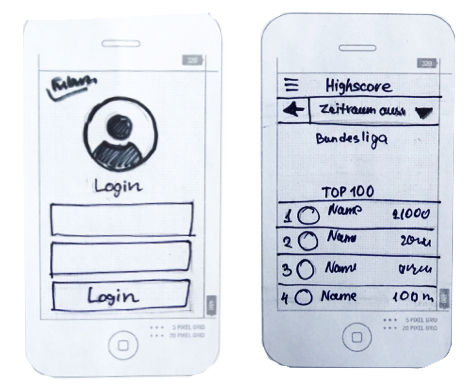 320
Login
Login
5 PIXEL GRID
20 PIXEL GRID
320
Highscore
Zeitraum
Bundesliga
TOP 100
1 Name
2 Name
3 Name
4 Name 100
5 PIXEL GRID
20 PIXEL GRID